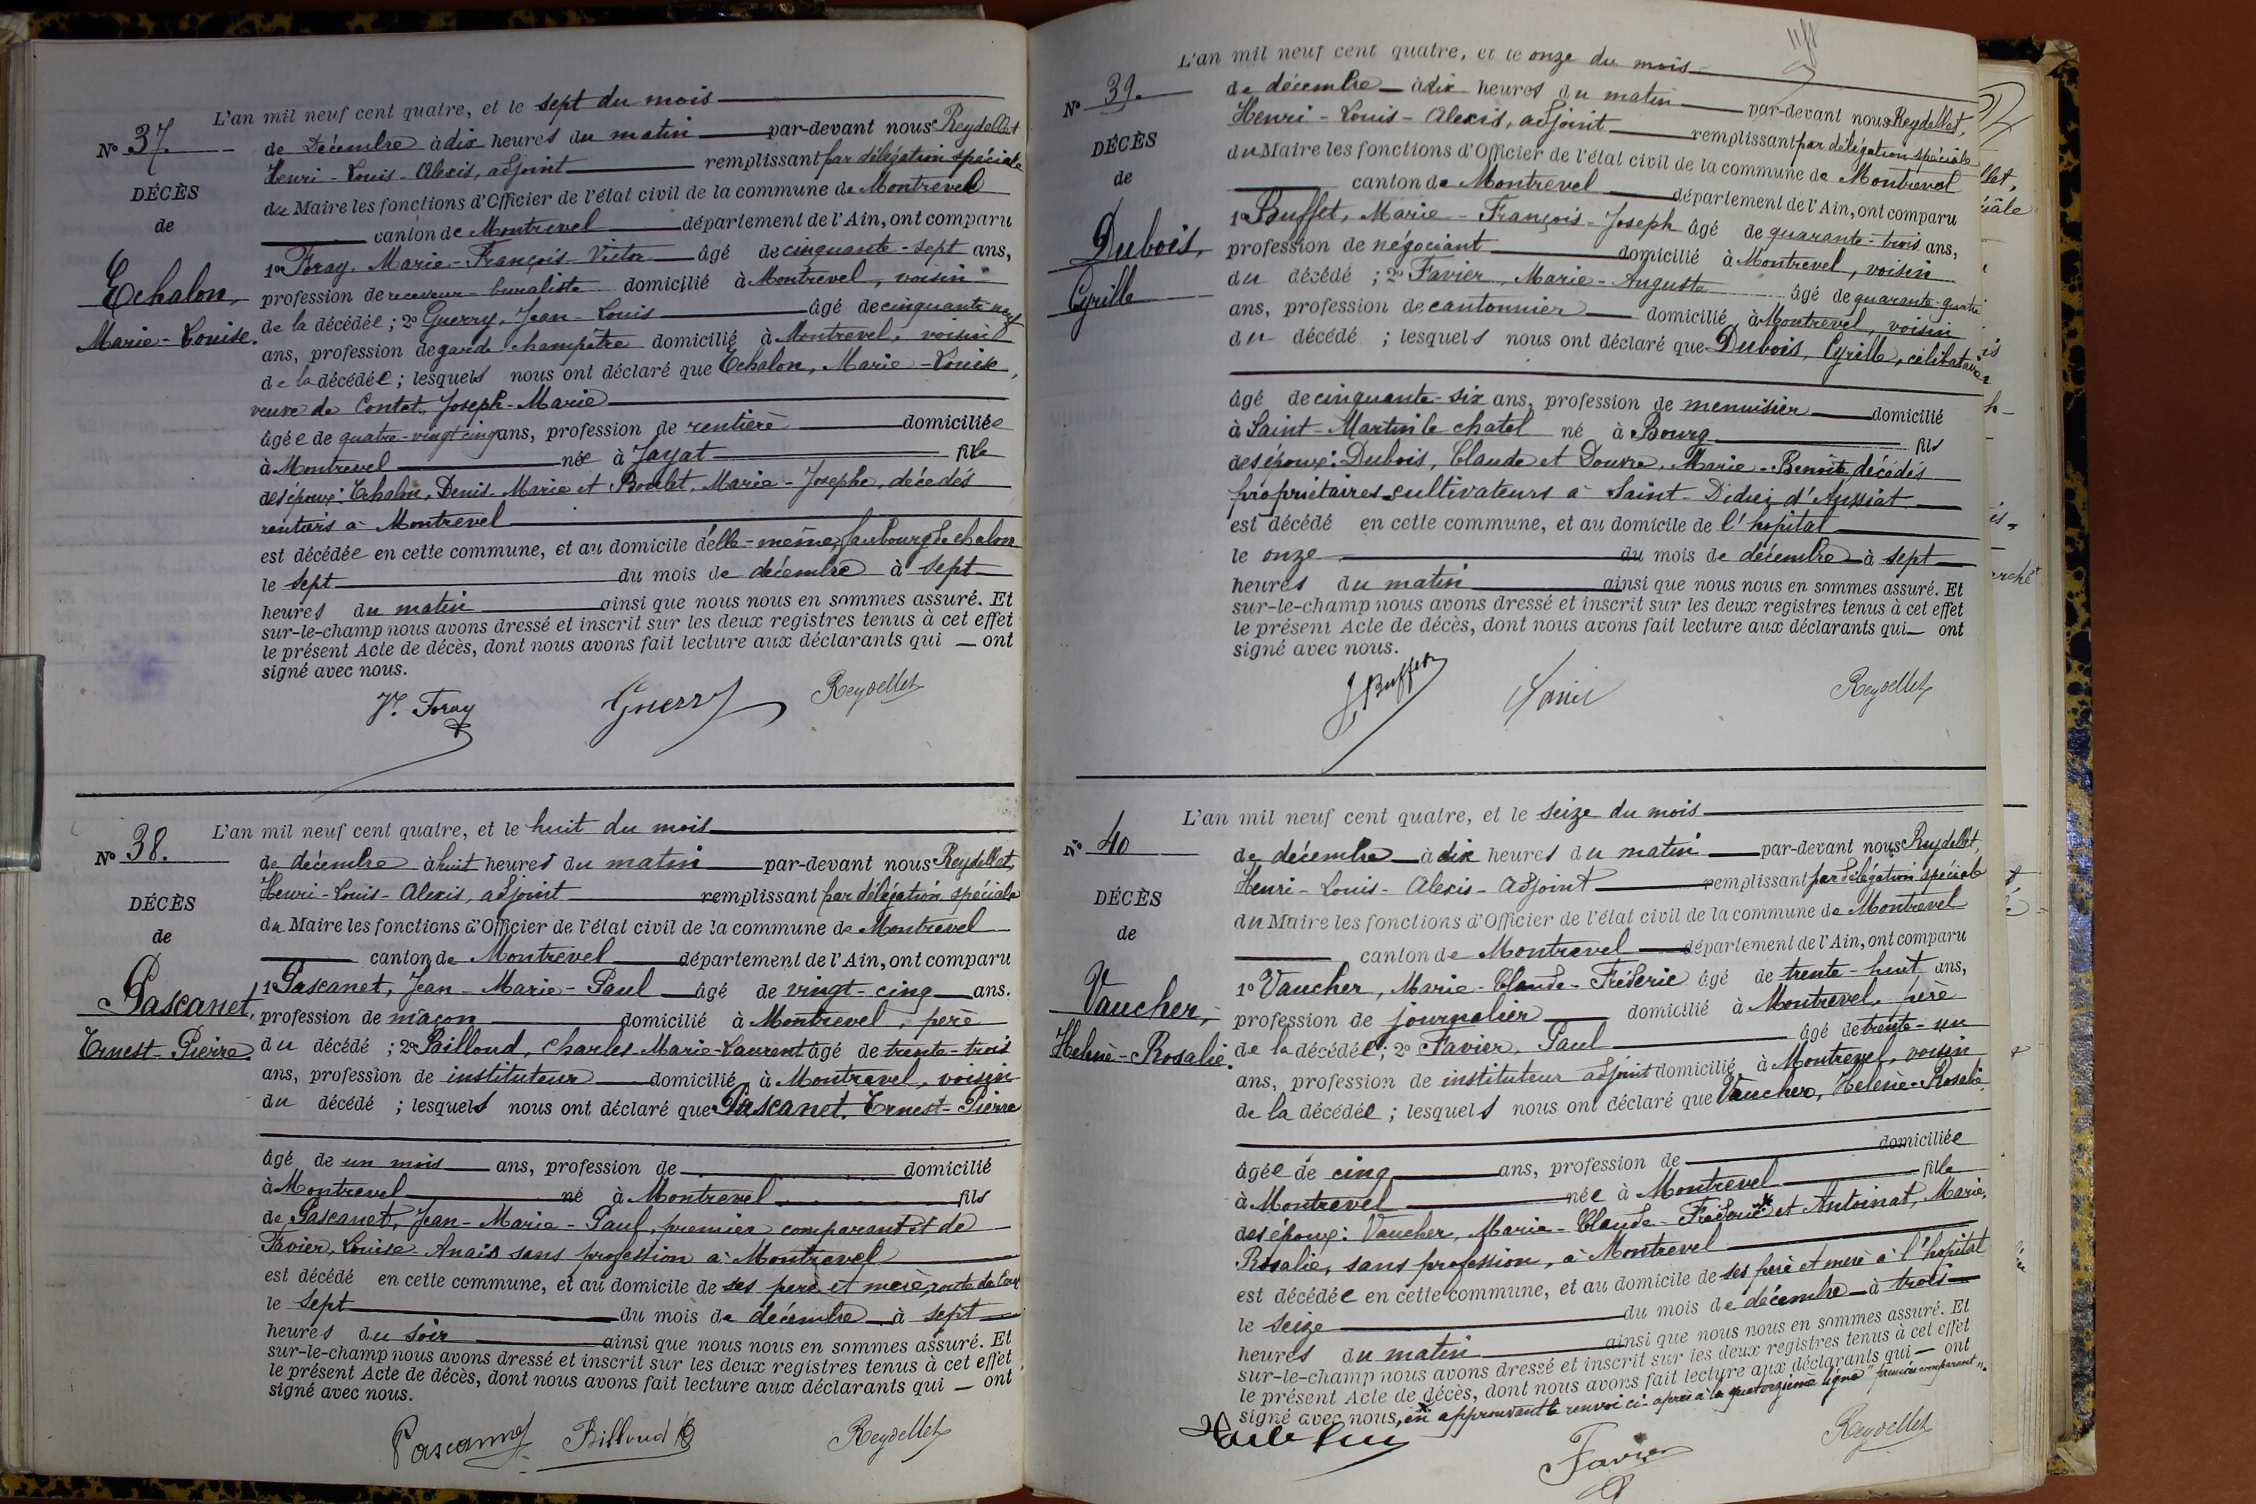 L'an mil neuf cent quatre, et le sept du mois
No 37.
de Décembre à dix heures du matin par-devant nous Reydellet
Henri-Louis-Alexis, adjoint remplissant par délégation spéciale
DÉCÈS
du Maire les fonctions d'Officier de l'état civil de la commune de Montrevel
de
canton de Montrevel département de l'Ain, ont comparu
1o Foray, Marie-François-Victor âgé de cinquante-sept ans,
Echalon,
profession de receveur-buraliste domicilié à Montrevel, voisin
Marie-Louise.
de la décédée; 2o Guerry, Jean-Louis âgé de cinquante neuf
ans, profession de garde champêtre domicilié à Montrevel, voisin
de la décédée; lesquels nous ont déclaré que Echalon, Marie-Louise,
veuve de Contet, Joseph-Marie
âgée de quatre-vingt cinq ans, profession de rentière domiciliée
à Montrevel née à Jayat fille
des époux: Echalon, Denis-Marie et Boulet, Marie-Josephe, décédés
rentiers à Montrevel
est décédée en cette commune, et au domicile d'elle-même, faubourg de chalon
le sept du mois de décembre à sept
heures du matin ainsi que nous nous en sommes assuré. Et
sur-le-champ nous avons dressé et inscrit sur les deux registres tenus à cet effet
le présent Acte de décès, dont nous avons fait lecture aux déclarants qui — ont
signé avec nous.
Vr. Foray Guerry Reydellet
L'an mil neuf cent quatre, et le huit du mois
No 38.
de décembre à huit heures du matin par-devant nous Reydellet,
Henri-Louis-Alexis, adjoint remplissant par délégation spéciale
DÉCÈS
du Maire les fonctions d'Officier de l'état civil de la commune de Montrevel
de
canton de Montrevel département de l'Ain, ont comparu
Pascanet,
1o Pascanet, Jean-Marie-Paul âgé de vingt-cinq ans.
profession de maçon domicilié à Montrevel, père
Ernest-Pierre.
du décédé; 2o Billoud, Charles-Marie-Laurent âgé de trente-trois
ans, profession de instituteur domicilié à Montrevel, voisin
du décédé; lesquels nous ont déclaré que Pascanet, Ernest-Pierre
âgé de un mois ans, profession de domicilié
à Montrevel né à Montrevel fils
de Pascanet, Jean-Marie-Paul, premier comparant et de
Favier, Louise Anais sans profession à Montrevel
est décédé en cette commune, et au domicile de ses père et mère, route de
le sept du mois de décembre à sept
heures du soir ainsi que nous nous en sommes assuré. Et
sur-le-champ nous avons dressé et inscrit sur les deux registres tenus à cet effet
le présent Acte de décès, dont nous avons fait lecture aux déclarants qui — ont
signé avec nous.
Pascanet Billoud Reydellet
L'an mil neuf cent quatre, et le onze du mois
No 39.
de décembre à dix heures du matin par-devant nous Reydellet,
Henri-Louis-Alexis, adjoint remplissant par délégation spéciale
DÉCÈS
du Maire les fonctions d'Officier de l'état civil de la commune de Montrevel
de
canton de Montrevel département de l'Ain, ont comparu
1o Buffet, Marie-François-Joseph âgé de quarante-trois ans,
Dubois,
profession de négociant domicilié à Montrevel, voisin
Cyrille
du décédé; 2o Favier, Marie-Auguste âgé de quarante-quatre
ans, profession de cantonnier domicilié à Montrevel, voisin
du décédé; lesquels nous ont déclaré que Dubois, Cyrille, célibataire
âgé de cinquante-six ans, profession de menuisier domicilié
à Saint-Martin le chatel né à Bourg fils
des époux: Dubois, Claude et Douvre, Marie-Benoite, décédés
propriétaires cultivateurs à Saint-Didier d'Aussiat
est décédé en cette commune, et au domicile de l'hopital
le onze du mois de décembre à sept
heures du matin ainsi que nous nous en sommes assuré. Et
sur-le-champ nous avons dressé et inscrit sur les deux registres tenus à cet effet
le présent Acte de décès, dont nous avons fait lecture aux déclarants qui — ont
signé avec nous.
J Buffet Reydellet
L'an mil neuf cent quatre, et le seize du mois
No 40
de décembre à dix heures du matin par-devant nous Reydellet,
Henri-Louis-Alexis-Adjoint remplissant par délégation spéciale
DÉCÈS
du Maire les fonctions d'Officier de l'état civil de la commune de Montrevel
de
canton de Montrevel département de l'Ain, ont comparu
Vaucher,
1o Vaucher, Marie-Claude-Fréderic âgé de trente-huit ans,
profession de journalier domicilié à Montrevel, père
Helène-Rosalie.
de la décédée; 2o Favier, Paul âgé de trente-un
ans, profession de instituteur adjoint domicilié à Montrevel, voisin
de la décédée; lesquels nous ont déclaré que Vaucher, Helène-Rosalie
âgée de cinq ans, profession de domiciliée
à Montrevel née à Montrevel fille
des époux: Vaucher, Marie-Claude-Fréderic* et Antoinat, Marie,
Rosalie, sans profession, à Montrevel
est décédée en cette commune, et au domicile de ses père et mère à l'hopital
le seize du mois de décembre à trois
heures du matin ainsi que nous nous en sommes assuré. Et
sur-le-champ nous avons dressé et inscrit sur les deux registres tenus à cet effet
le présent Acte de décès, dont nous avons fait lecture aux déclarants qui — ont
signé avec nous, en approuvant le renvoi ci-après à la quatorzième ligne "premier comparant".
Favier Reydellet